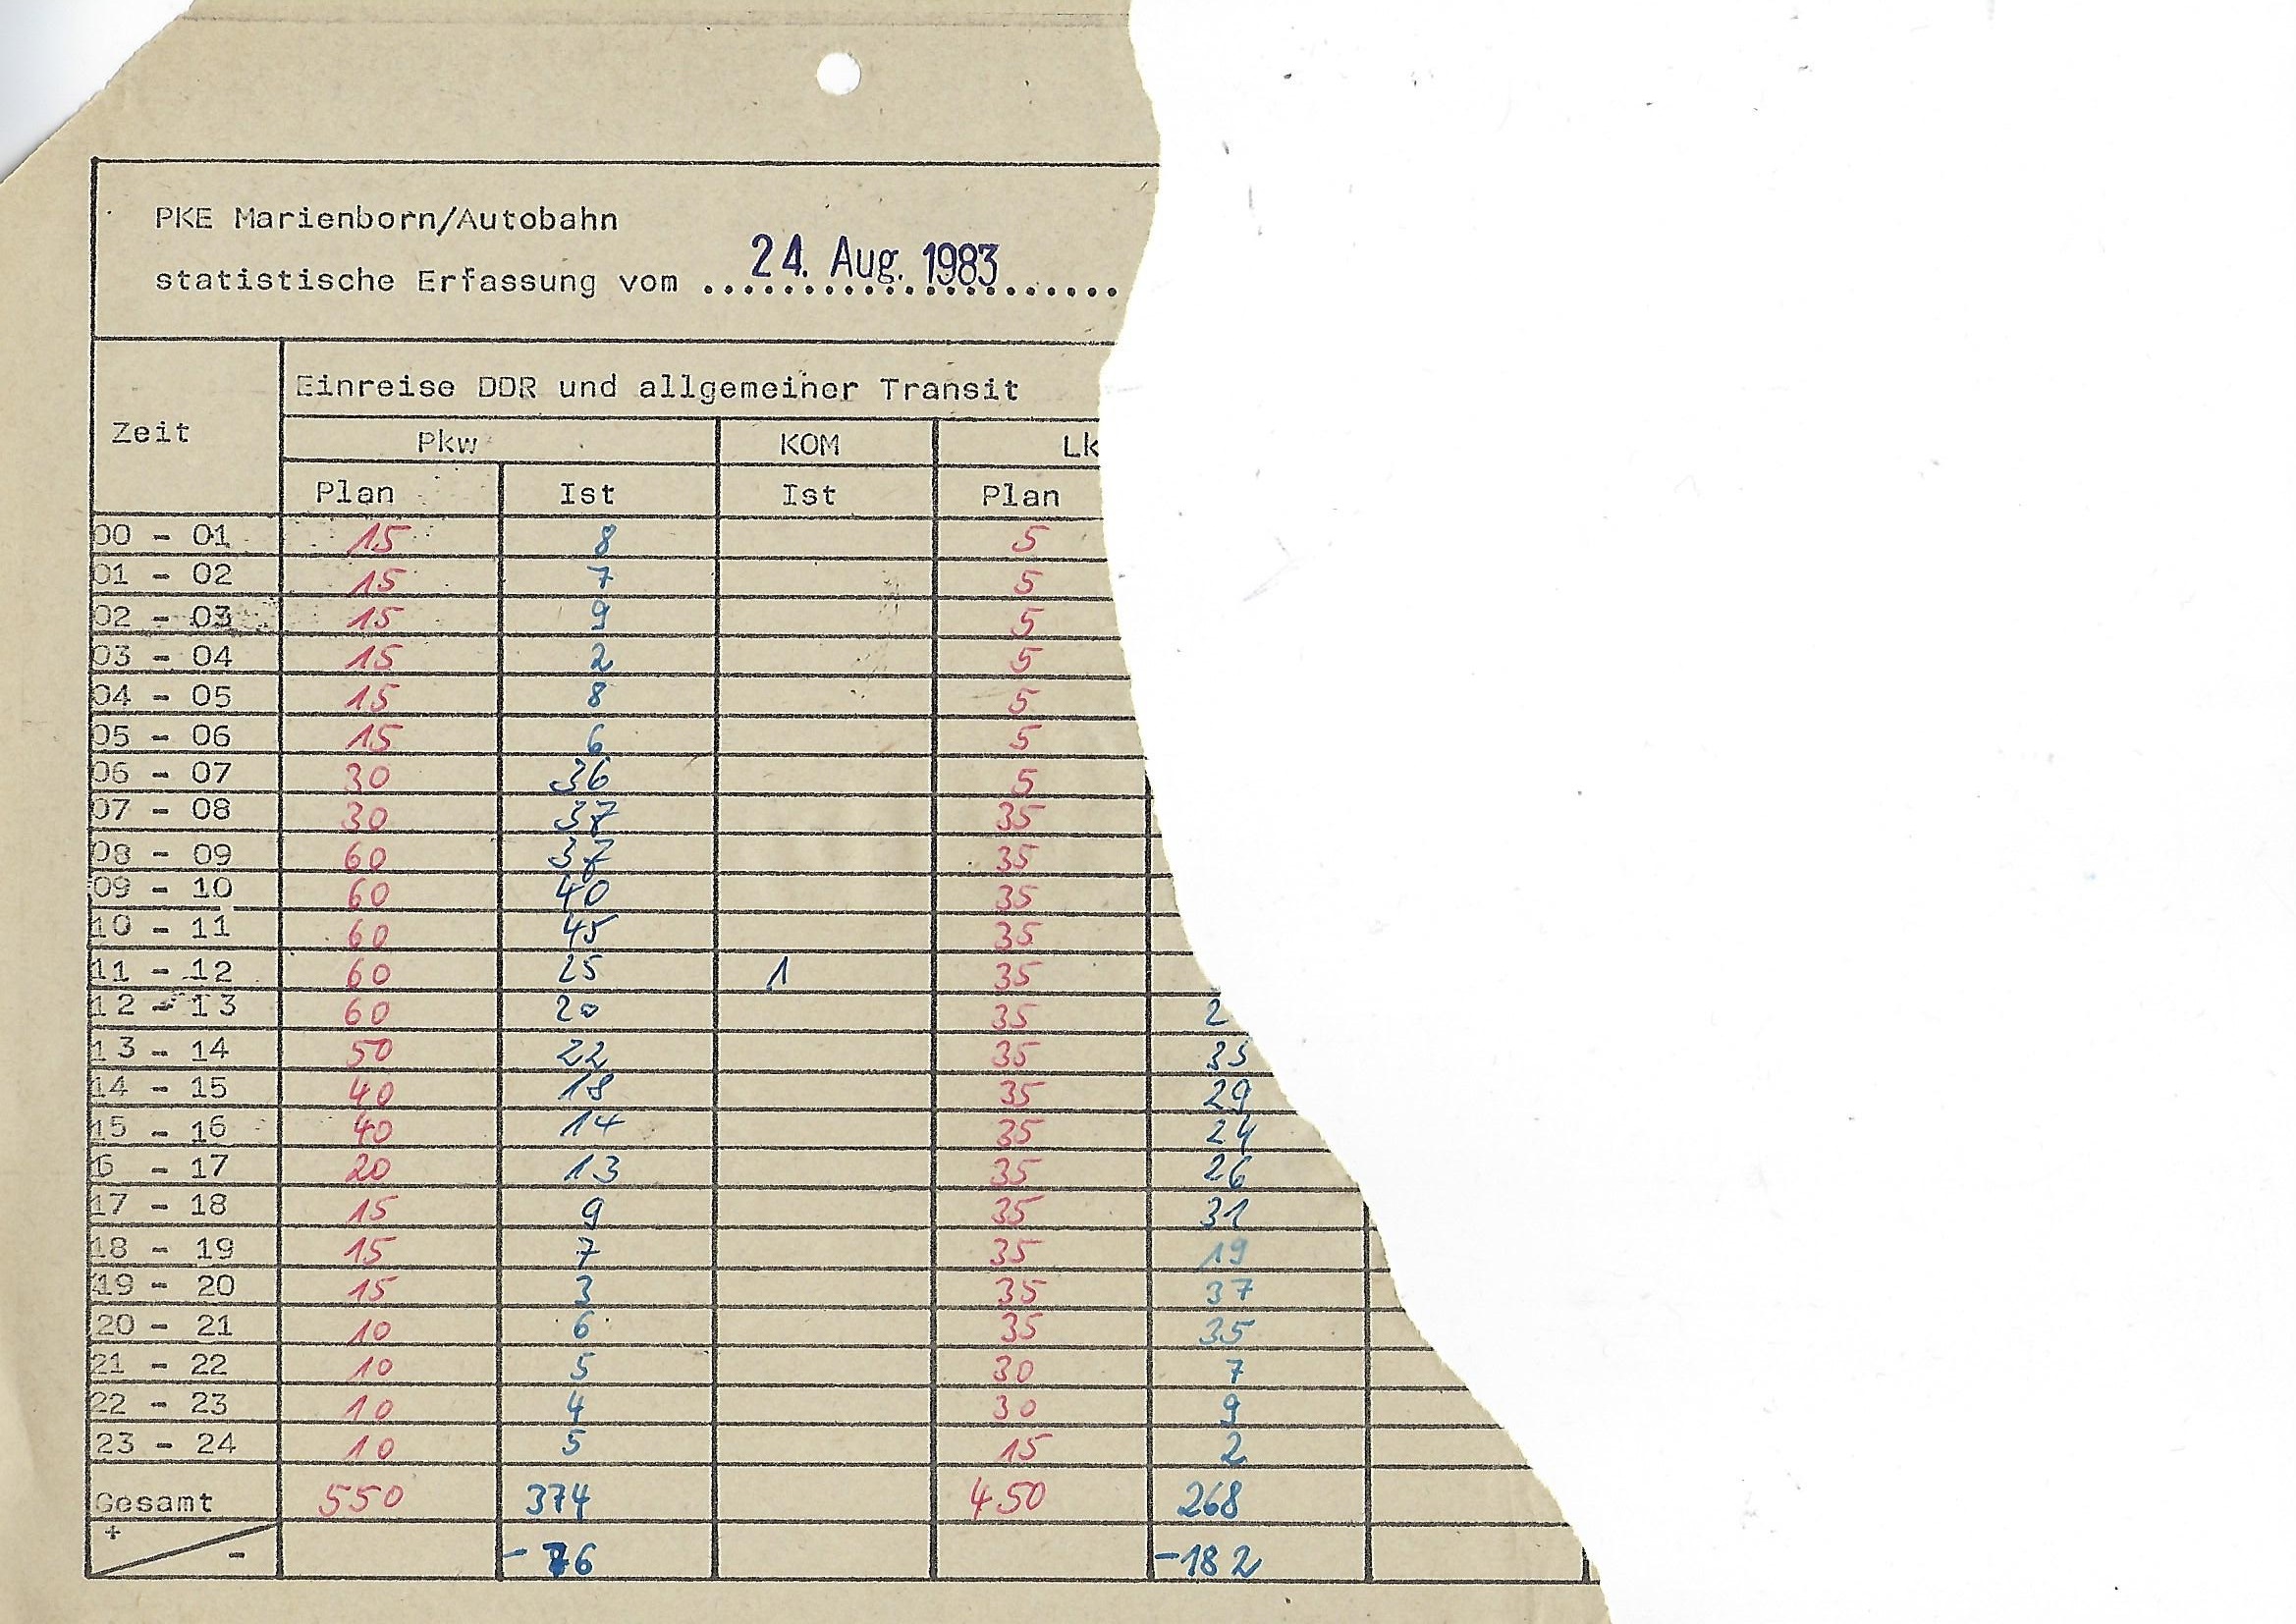 PKE Marienborn/Autobahn
24. Aug. 1983
statistische Erfassung vom ......................
Einreise DDR und allgemeiner Transit
Zeit
Pkw KOM Lk
Plan Ist Ist Plan
00 - 01 15 8 5
01 - 02 15 7 5
02 - 03 15 9 5
03 - 04 15 2 5
04 - 05 15 8 5
05 - 06 15 6 5
06 - 07 30 36 5
07 - 08 30 37 35
08 - 09 60 37 35
09 - 10 60 40 35
10 - 11 60 45 35
11 - 12 60 25 1 35
12 - 13 60 20 35 2
13 - 14 50 22 35 35
14 - 15 40 18 35 29
15 - 16 40 14 35 24
6 - 17 20 13 35 26
17 - 18 15 9 35 31
18 - 19 15 7 35 19
19 - 20 15 3 35 37
20 - 21 10 6 35 35
21 - 22 10 5 30 7
22 - 23 10 4 30 9
23 - 24 10 5 15 2
Gesamt 550 374 450 268
+ - -76 -182